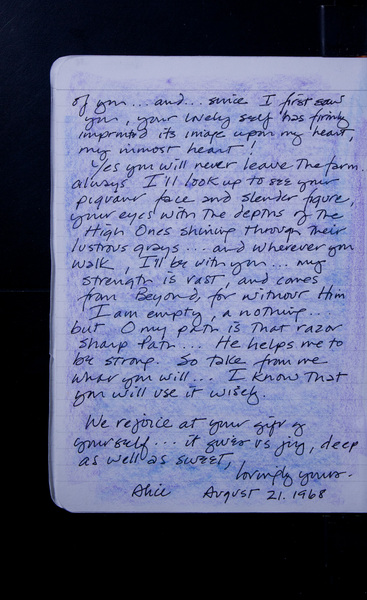 of you... and... since I first saw
you, your lovely self has firmly
imprinted its image upon my heart,
my inmost heart!
Yes you will never leave the farm..
always I'll look up to see your
piquant face and slender figure,
your eyes with the depths of the
High Ones shining through their
lustrous grays... and wherever you
walk, I'll be with you... my
strength is vast, and comes
from Beyond, for without Him
I am empty, a nothing...
but O my path is that razor
sharp Path... He helps me to
be strong. So take from me
what you will... I know that
you will use it wisely.
We rejoice at your gift of
yourself... it gives us joy, deep
as well as sweet,
lovingly yours.
Alice August 21. 1968